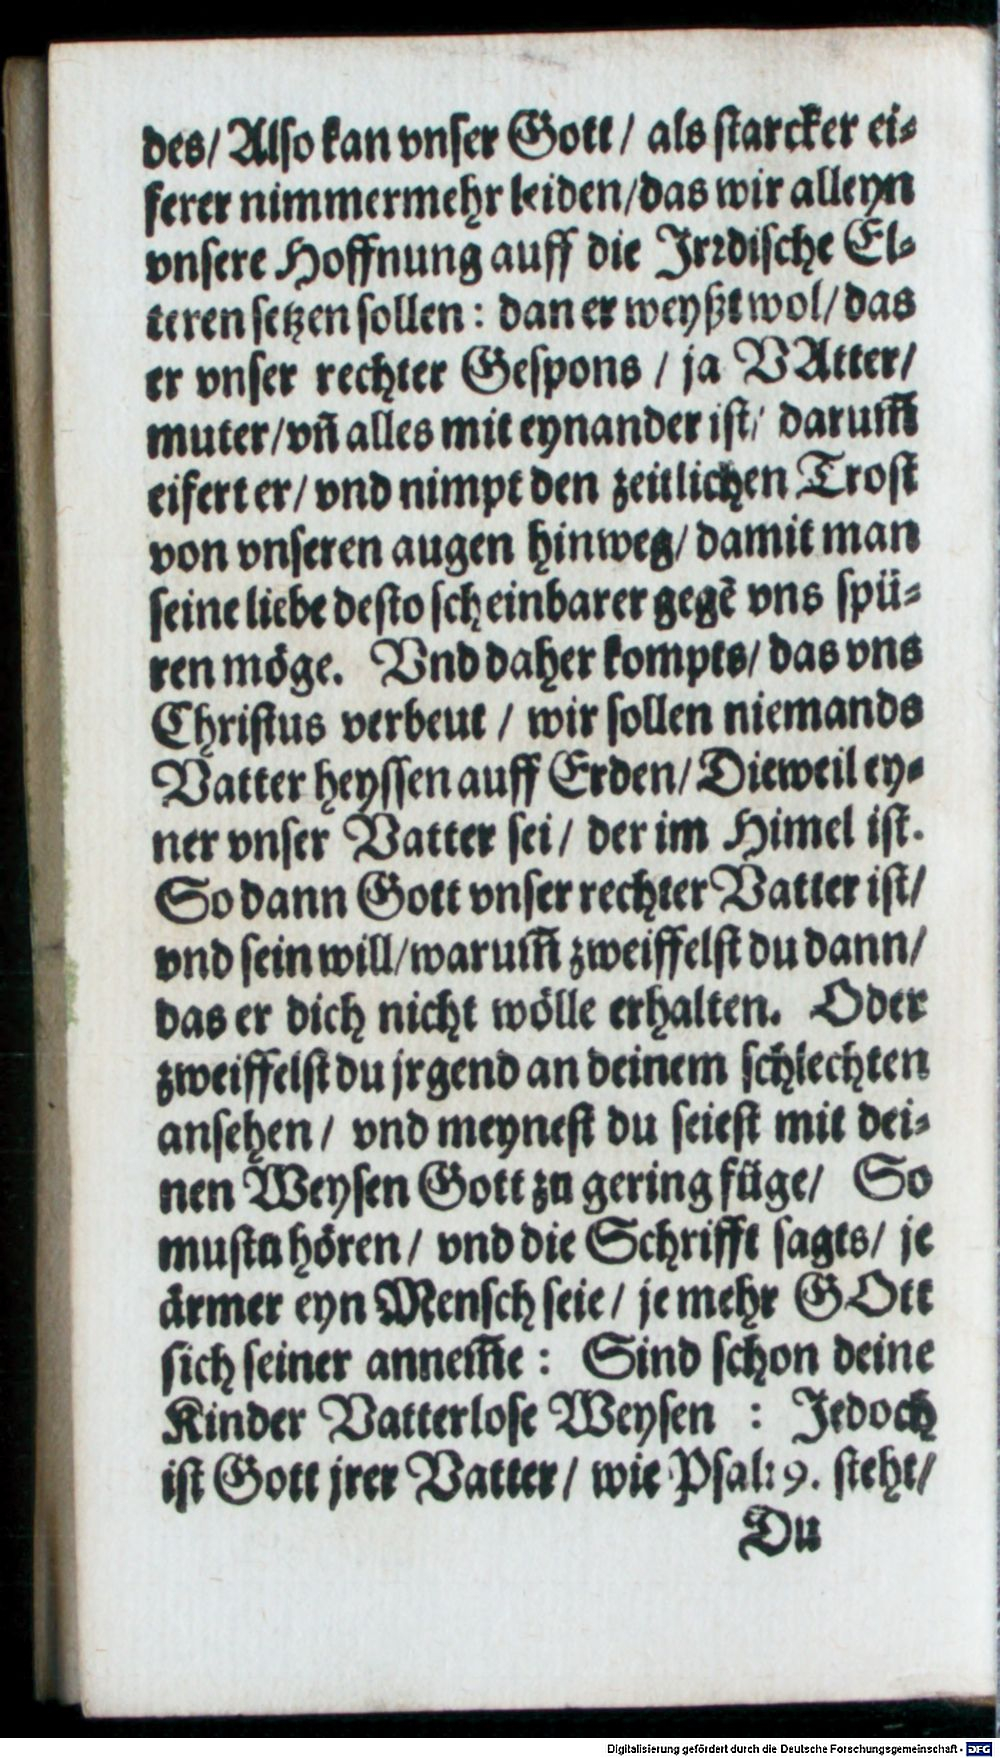 des/ Also kan vnser Gott/ als starcker ei⸗
ferer nimmermehr leiden/das wir alleyn
vnsere Hoffnung auff die Jrꝛdische El⸗
teren setzen sollen: dan er weyßt wol/ das
er vnser rechter Gespons / ja VAtter/
muter/vñ alles mit eynander ist/ darum̃
eifert er/ vnd nimpt den zeitlichen Trost
von vnseren augen hinweg/ damit man
seine liebe desto scheinbarer gegẽ vns spü⸗
ren möge. Vnd daher kompts/ das vns
Christus verbeut / wir sollen niemands
Vatter heyssen auff Erden/ Dieweil ey⸗
ner vnser Vatter sei/ der im Himel ist.
So dann Gott vnser rechter Vatter ist/
vnd sein will/warum̃ zweiffelst du dann/
das er dich nicht wölle erhalten. Oder
zweiffelst du jrgend an deinem schlechten
ansehen/ vnd meynest du seiest mit dei⸗
nen Weysen Gott zu gering füge/ So
mustu hören/ vnd die Schrifft sagts/ je
ärmer eyn Mensch seie/ je mehr GOtt
sich seiner annem̃e: Sind schon deine
Kinder Vatterlose Weysen : Jedoch
ist Gott jrer Vatter/ wie Psal: 9. steht/
Du
Digitalisierung gefördert durch die Deutsche Forschungsgemeinschaft - DFG